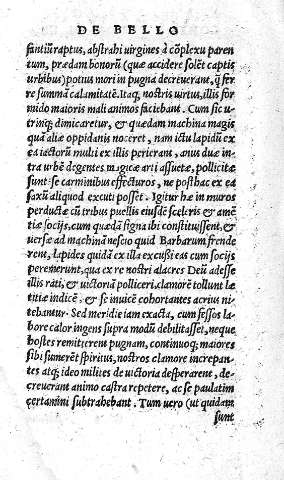 DE BELLO
fantiũ raptus, abstrahi virgines à cõplexu paren
tum, prædam bonorũ (quæ accidere solẽt captis
urbibus) potius mori in pugna decreuerant, q̃ fer
re summã calamitatẽ. Itaq; nostris uirtus, illis for
mido maioris mali animos faciebant. Cum sic u-
trinq; dimicaretur, & quædam machina magis
quã aliæ oppidanis noceret, nam ictu lapidũ ex
ea iactorũ multi ex illis perierant, anus duæ in-
tra urbẽ degentes magicæ arti assuetæ, pollicitæ
sunt se carminibus effecturos, ne posthac ex ea
saxũ aliquod excuti posset. Igitur hæ in muros
perductæ cũ tribus puellis eiusdẽ sceleris & amẽ-
tiæ socijs, cum quædã signa ibi constituissent, &
uersæ ad machinã nescio quid Barbarum frende
rent, lapides quidã ex illa excußi eas cum socijs
peremerunt, qua ex re nostri alacres Deũ adesse
illis rati, & uictoriã polliceri, clamorẽ tollunt læ
titiæ indicẽ, & se inuicẽ cohortantes acrius ni-
tebantur. Sed meridie iam exacta, cum fessos la-
bore calor ingens supra modũ debilitasset, neque
hostes remitterent pugnam, continuoq; maiores
sibi sumerẽt spiritus, nostros clamore increpan-
tes atq; ideo milites de uictoria desperarent, de-
creuerant animo castra repetere, ac se paulatim
certamini subtrahebant. Tum uero (ut quidam
sunt